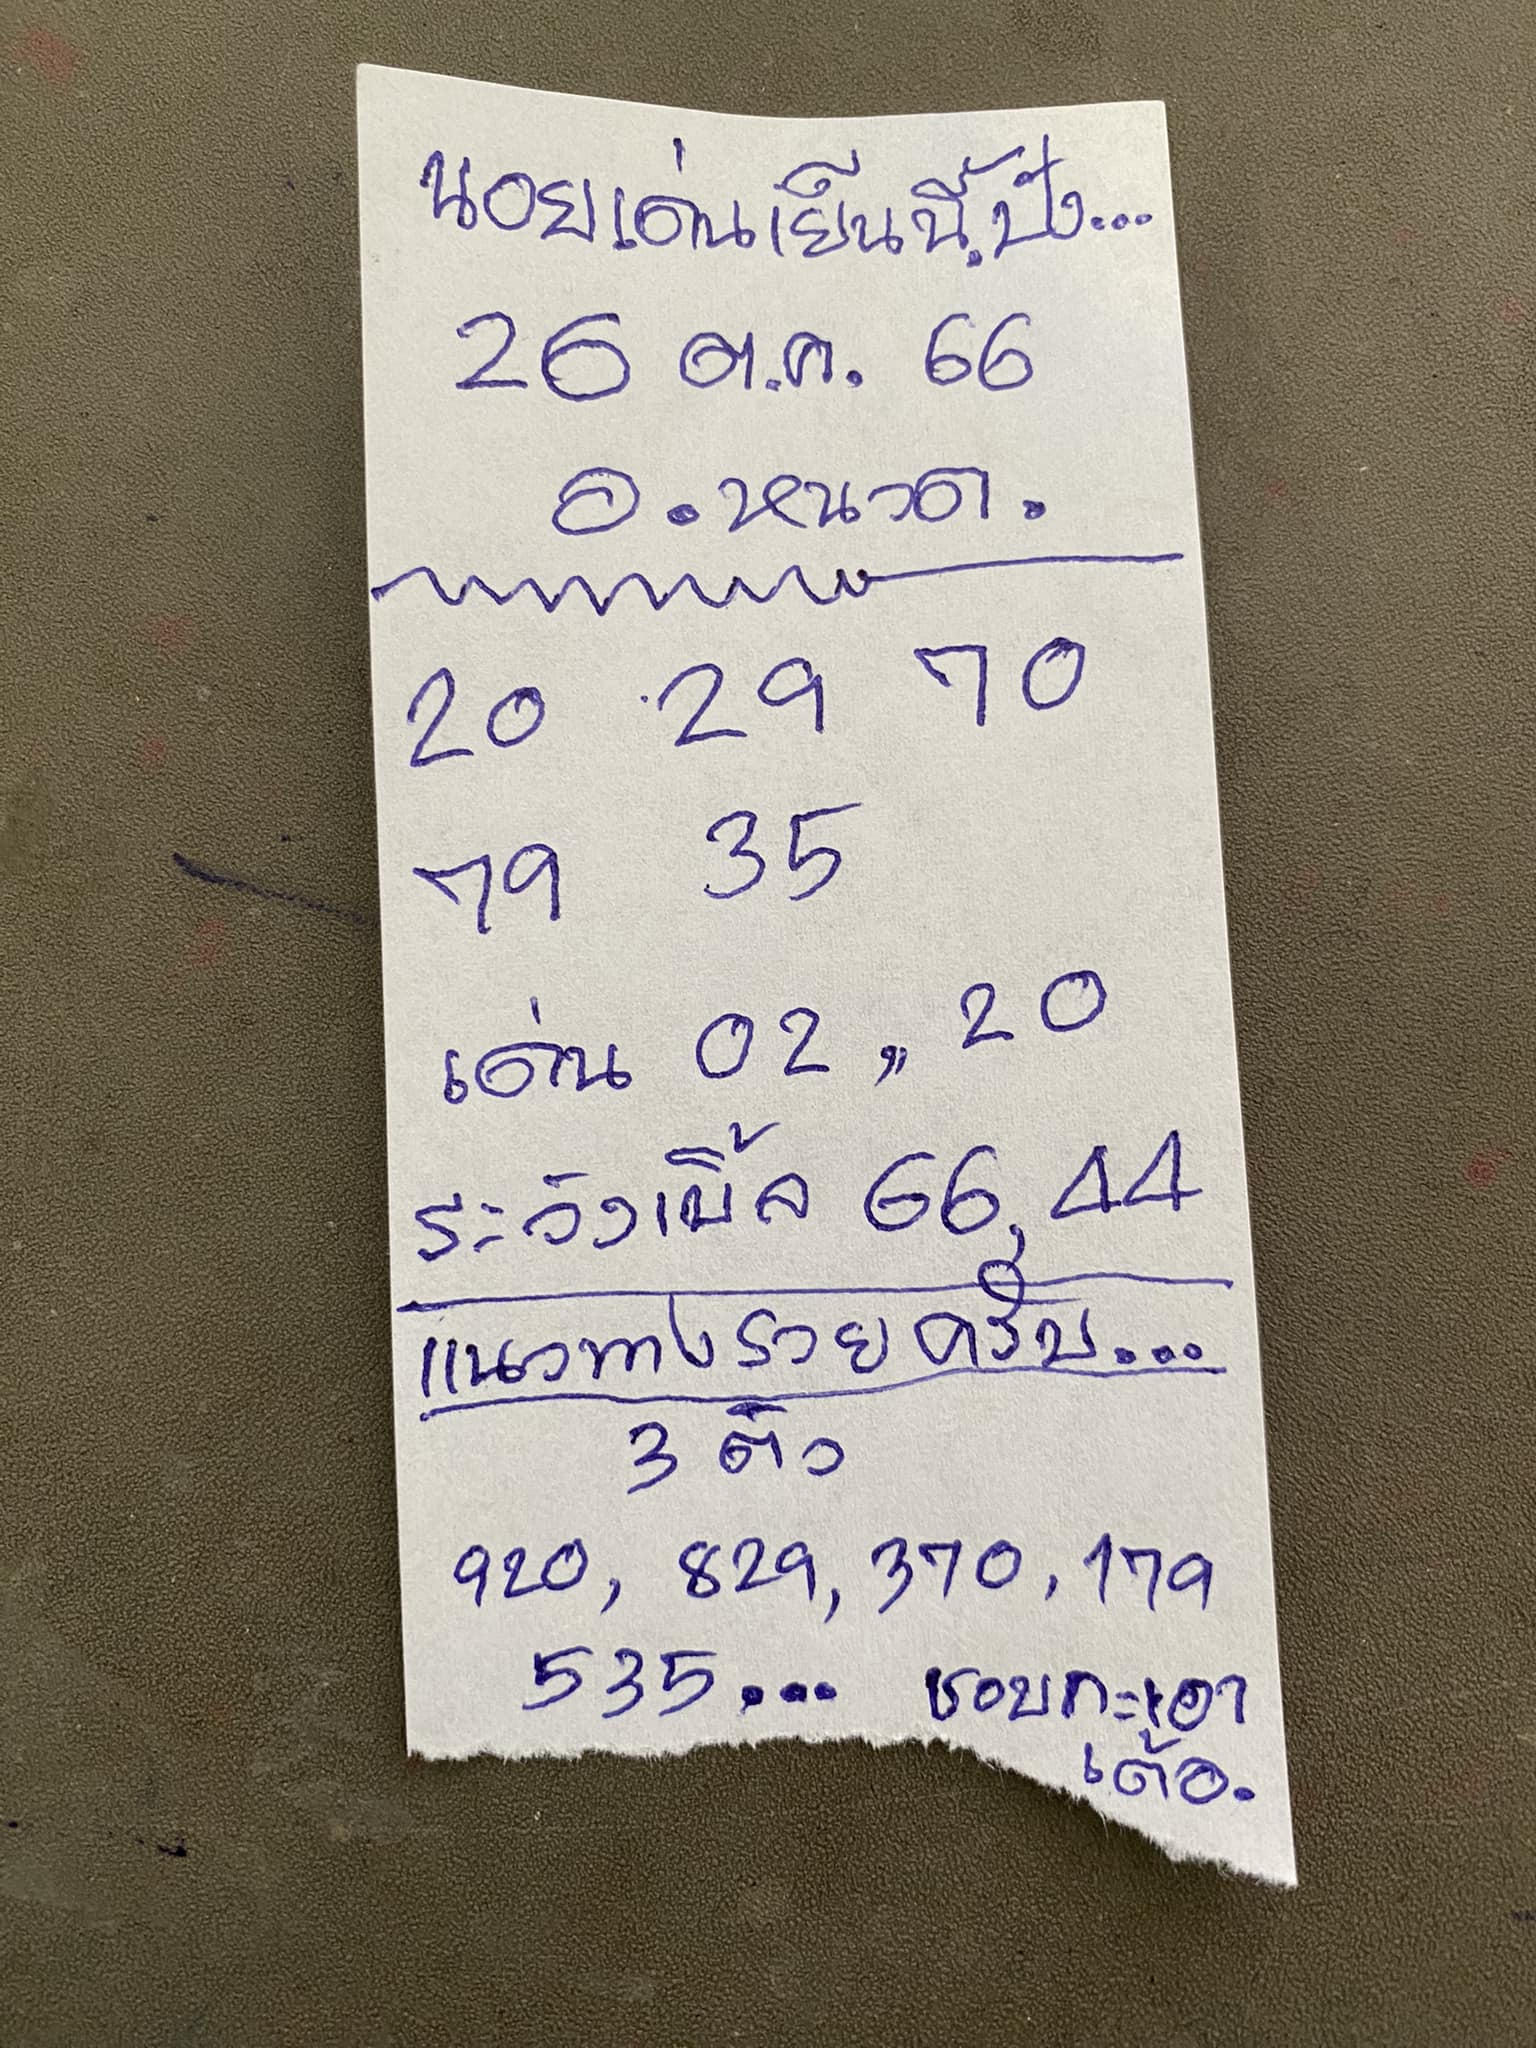 นอยเด่นเย็นนี้.ปัง...
26 ต.ค. 66
อ.หนวด.
20 29 70
79 35
เด่น 02 ,, 20
ระวังเบิ้ล 66, 44
แนวทางรวยครับ...
3 ตัว
920, 829, 370, 179
535... ชอบกะเอา
เด้อ.